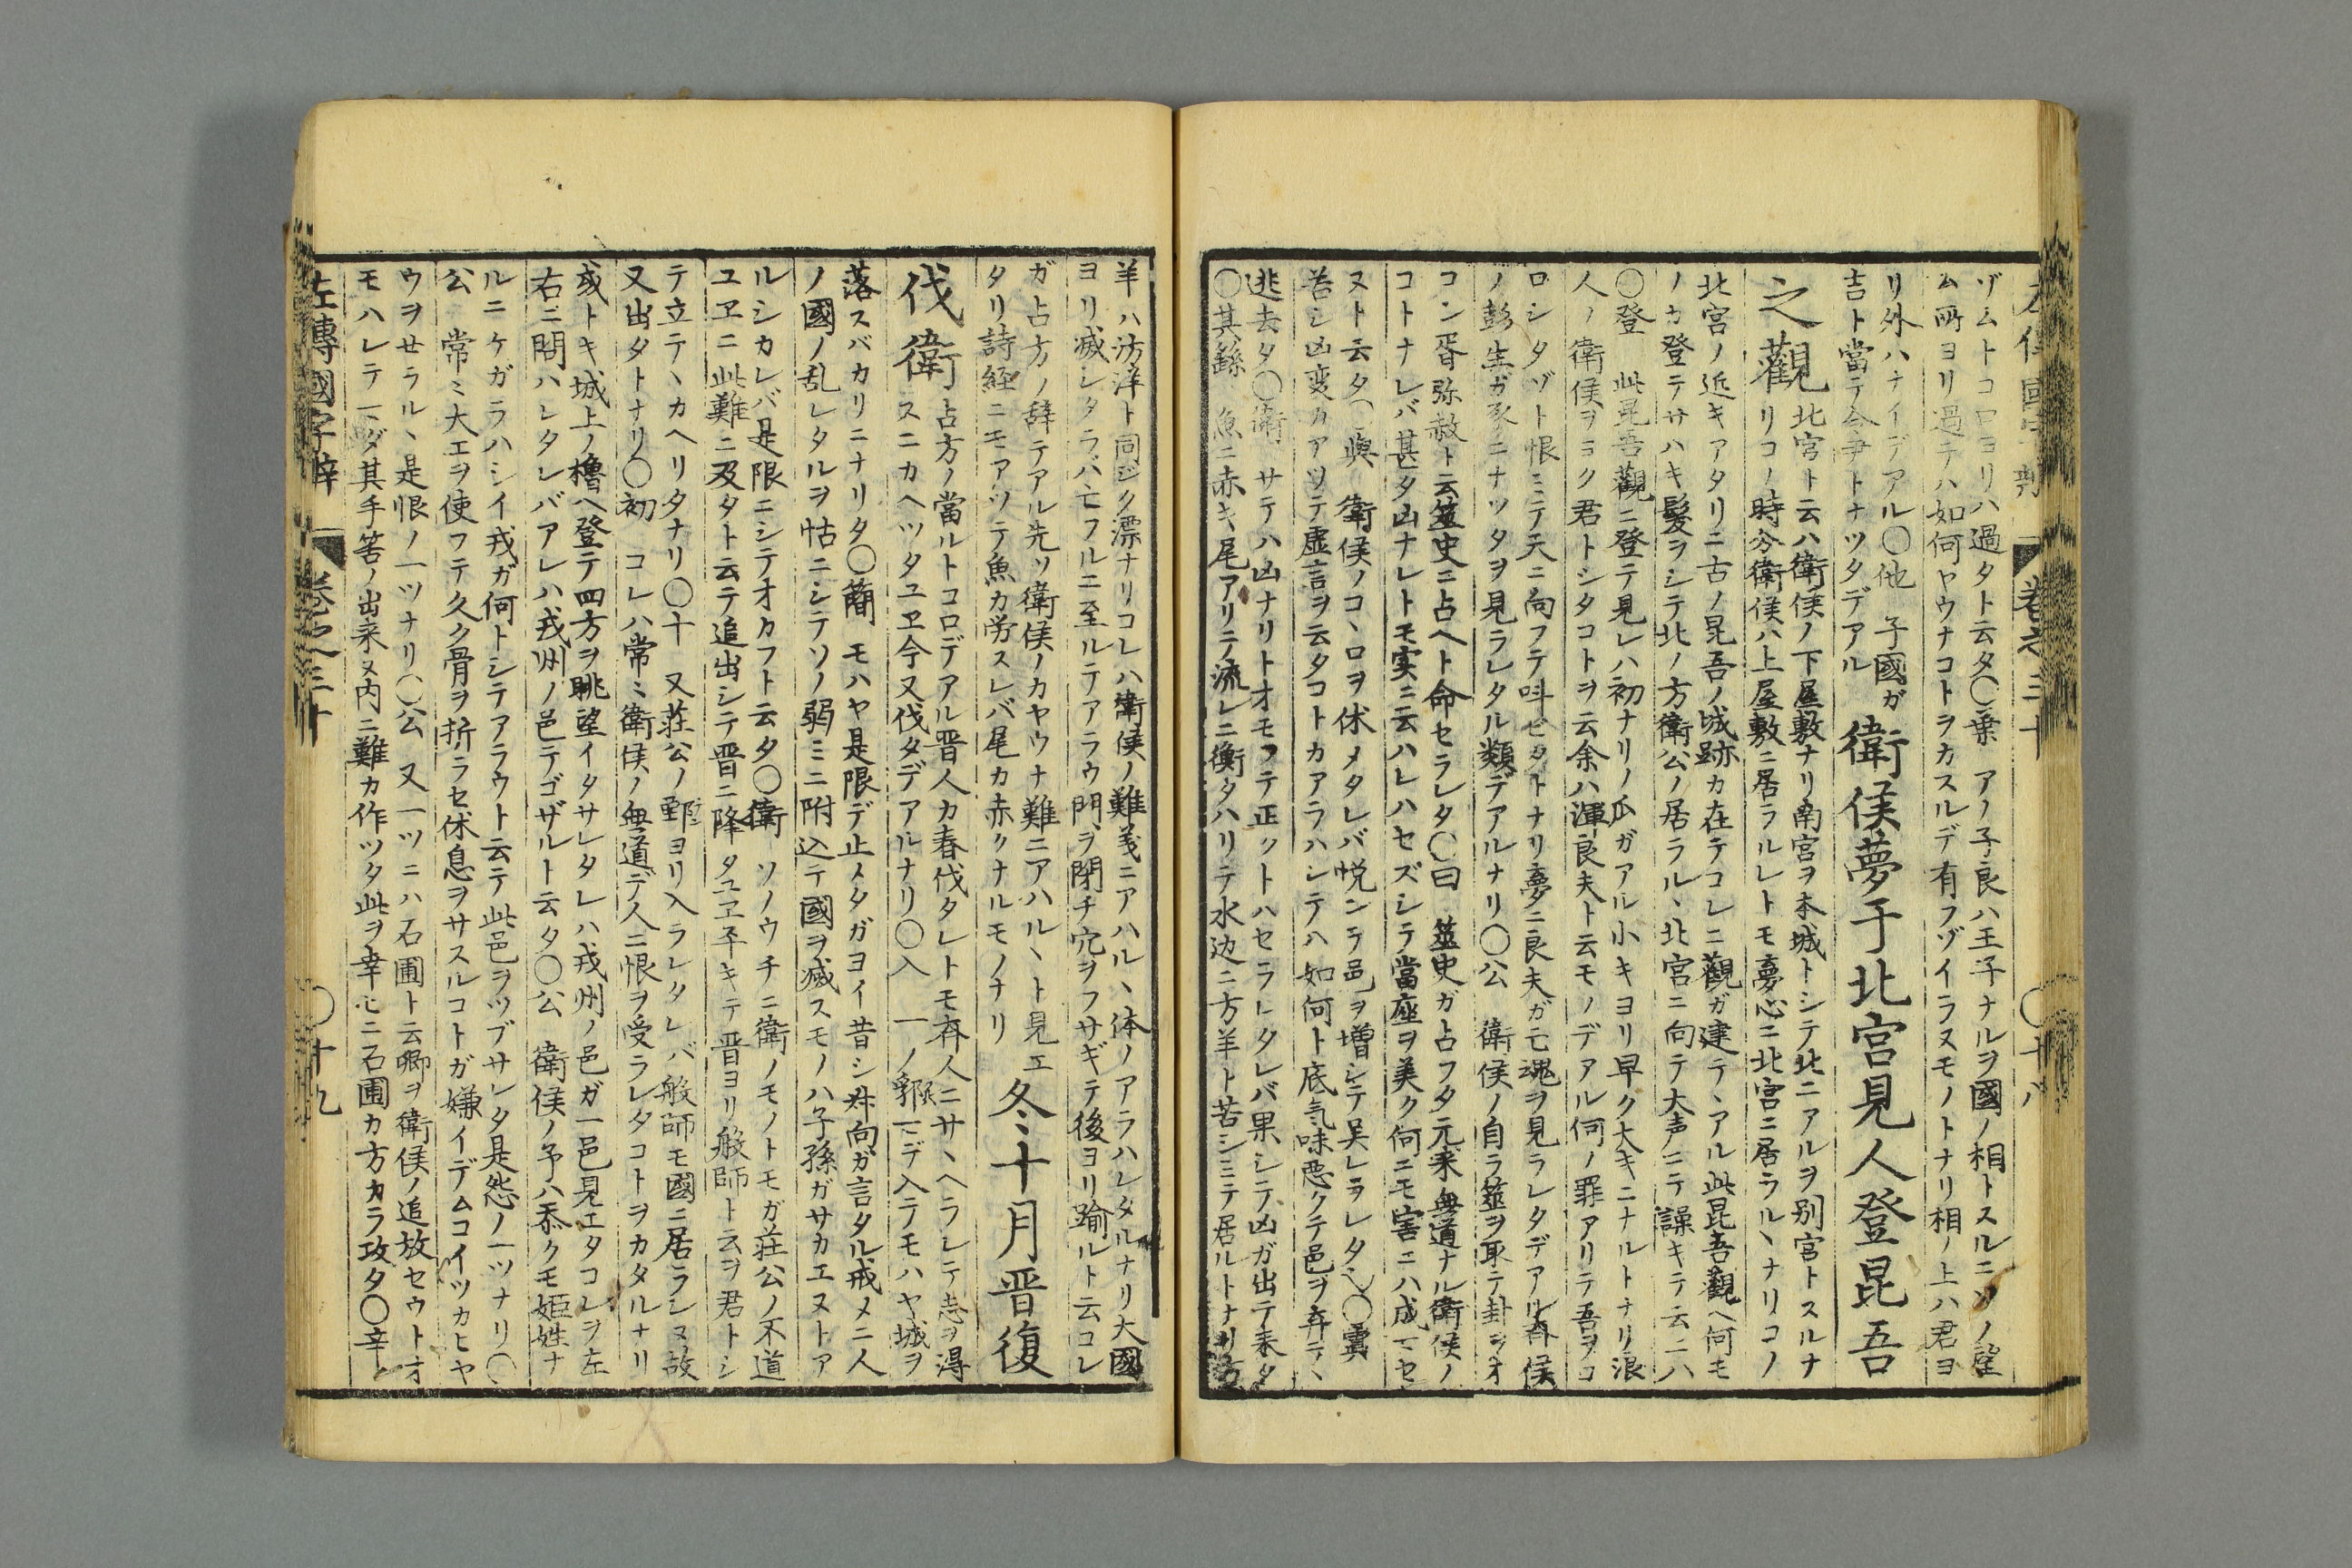 ゾムトコロヨリハ過タト云タ〇葉 アノ子良ハ王子ナルヲ國ノ相トスルニソノ望
ム所ヨリ過テハ如何ヤウナコトヲカスルデ有フゾイラヌモノトナリ相ノ上ハ君ヨ
リ外ハナイデアル〇他 子國ガ
吉ト當テ令尹トナツタデアル
衛侯夢于北宮見人登昆吾
之觀
北宮ト云ハ衛侯ノ下屋敷ナリ南宮ヲ本城トシテ北ニアルヲ別宮トスルナ
リコノ時分衛侯ハ上屋敷ニ居ラルレトモ夢心ニ北宮ニ居ラルヽナリコノ
北宮ノ近キアタリニ古ノ昆吾ノ城跡カ在テコレニ觀ガ建テヽアル此昆吾觀ヘ何モ
ノカ登テサハキ髮ヲシテ北ノ方衛公ノ居ラルヽ北宮ニ向テ大声ニテ譟キテ云ニハ
〇登 此昆吾觀ニ登テ見レハ初ナリノ瓜ガアル小キヨリ早ク大キニナルトナリ浪
人ノ衛侯ヲヨク君トシタコトヲ云余ハ渾良夫ト云モノデアル何ノ罪アリテ吾ヲコ
ロシタゾト恨ミテ天ニ向フテ呌ビタトナリ夢ニ良夫ガ亡魂ヲ見ラレタデアル斉侯
ノ彭生ガ豕ニナツタヲ見ラレタル類デアルナリ〇公 衛侯ノ自ラ筮ヲ取テ卦ヲオ
コン胥弥赦ト云筮史ニ占ヘト命セラレタ〇曰 筮史ガ占フタ元来無道ナル衛侯ノ
コトナレバ甚タ凶ナレトモ実ニ云ハレハセズシテ當座ヲ美ク何ニモ害ニハ成マセ
ヌト云タ〇與 衛侯ノコヽロヲ休メタレバ悦ンテ邑ヲ増シテ呉レラレタ〇寘
若シ凶変カアツテ虚言ヲ云タコトカアラハシテハ如何ト底気味悪クテ邑ヲ弃テヽ
逃去タ〇衛 サテハ凶ナリトオモフテ正ツトハセラレタレバ果シテ凶ガ出テ来タ
〇其繇 魚ニ赤キ尾アリテ流レニ衡タハリテ水边ニ方羊ト苦シミテ居ルトナリ方
羊ハ汸洋ト同ジク漂ナリコレハ衛侯ノ難義ニアハルヽ体ノアラハレタルナリ大國
ヨリ滅シタラバ亡フルニ至ルテアラウ門ヲ閉チ穴ヲフサギテ後ヨリ踰ルト云コレ
ガ占方ノ辞テアル先ツ衛侯ノカヤウナ難ニアハルヽト見エ
タリ詩経ニモアツテ魚カ労スレバ尾カ赤クナルモノナリ
冬十月晋復
伐衛
占方ノ當ルトコロデアル晋人カ春伐タレトモ斉人ニサヽヘラレテ志ヲ得
スニカヘツタユヱ今又伐タデアルナリ〇入 一ノ郛マデ入テモハヤ城ヲ
落スバカリニナリタ〇簡 モハヤ是限デ止メタガヨイ昔シ叔向ガ言タル戒メニ人
ノ國ノ乱レタルヲ怙ニシテソノ弱ミニ附込テ國ヲ滅スモノハ子孫ガサカエヌトア
ルシカレバ是限ニシテオカフト云タ〇衛 ソノウチニ衛ノモノトモガ荘公ノ不道
ユヱニ此難ニ及タト云テ追出シテ晋ニ降タユヱ平キテ晋ヨリ般師ト云ヲ君トシ
テ立テヽカヘリタナリ〇十 又荘公ノ鄄ヨリ入ラレタレバ般師モ國ニ居ラレヌ故
又出タトナリ〇初 コレハ常ミ衛侯ノ無道デ人ニ恨ヲ受ラレタコトヲカタルナリ
或トキ城上ノ櫓ヘ登テ四方ヲ眺望イタサレタレハ戎州ノ邑ガ一邑見エタコレヲ左
右ニ問ハレタレバアレハ戎州ノ邑テゴザルト云タ〇公 衛侯ノ予ハ忝クモ姫姓ナ
ルニケガラハシイ戎ガ何トシテアラウト云テ此邑ヲツブサレタ是怨ノ一ツナリ〇
公 常ミ大エヲ使フテ久ク骨ヲ折ラセ休息ヲサスルコトガ嫌イデムコイツカヒヤ
ウヲせラルヽ是恨ノ一ツナリ〇公 又一ツニハ石圃ト云卿ヲ衛侯ノ追放セウトオ
モハレテマダ其手筈ノ出来ヌ内ニ難カ作ツタ此ヲ幸心ニ石圃カ方カラ攻タ〇辛
左傳國字辯 巻之三十 〇十九